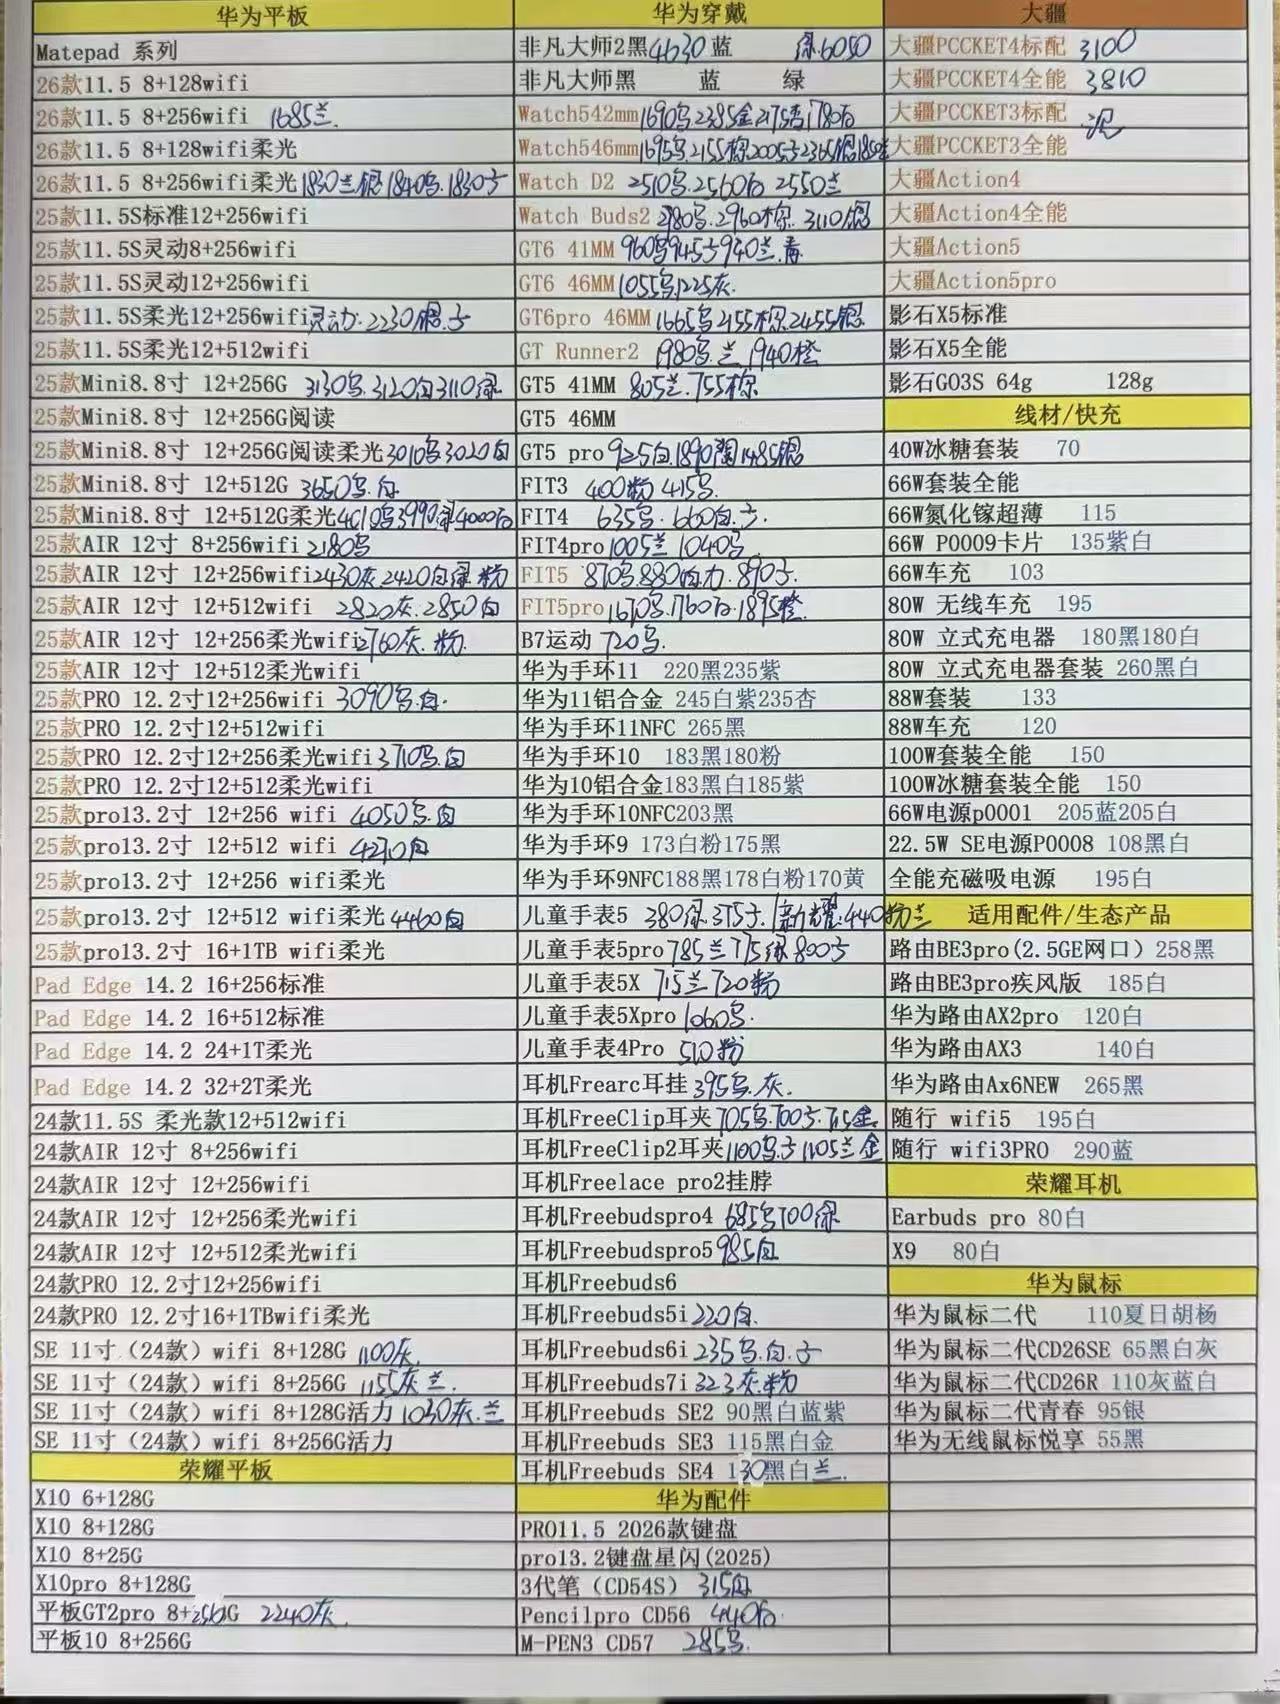 华为平板
Matepad 系列
26款11.5 8+128wifi
26款11.5 8+256wifi 1685兰.
26款11.5 8+128wifi柔光
26款11.5 8+256wifi柔光1830兰银1840乌.1830子
25款11.5S标准12+256wifi
25款11.5S灵动8+256wifi
25款11.5S灵动12+256wifi
25款11.5S柔光12+256wifi灵动.2230银.子
25款11.5S柔光12+512wifi
25款Mini8.8寸 12+256G 3130乌.3120白3110绿
25款Mini8.8寸 12+256G阅读
25款Mini8.8寸 12+256G阅读柔光3010乌3020白
25款Mini8.8寸 12+512G 3650乌.白
25款Mini8.8寸 12+512G柔光4010乌3990.绿4000白
25款AIR 12寸 8+256wifi 2180乌
25款AIR 12寸 12+256wifi2430灰2420白绿粉
25款AIR 12寸 12+512wifi 2820灰.2850白
25款AIR 12寸 12+256柔光wifi2760灰.粉.
25款AIR 12寸 12+512柔光wifi
25款PRO 12.2寸12+256wifi 3090乌.白.
25款PRO 12.2寸12+512wifi
25款PRO 12.2寸12+256柔光wifi3710乌.白
25款PRO 12.2寸12+512柔光wifi
25款pro13.2寸 12+256 wifi 4050乌.白
25款pro13.2寸 12+512 wifi 4270白
25款pro13.2寸 12+256 wifi柔光
25款pro13.2寸 12+512 wifi 柔光4460白
25款pro13.2寸 16+1TB wifi柔光
Pad Edge 14.2 16+256标准
Pad Edge 14.2 16+512标准
Pad Edge 14.2 24+1T柔光
Pad Edge 14.2 32+2T柔光
24款11.5S 柔光款12+512wifi
24款AIR 12寸 8+256wifi
24款AIR 12寸 12+256wifi
24款AIR 12寸 12+256柔光wifi
24款AIR 12寸 12+512柔光wifi
24款PRO 12.2寸12+256wifi
24款PRO 12.2寸16+1TBwifi柔光
SE 11寸（24款）wifi 8+128G 1100灰.
SE 11寸（24款）wifi 8+256G 1155灰兰.
SE 11寸（24款）wifi 8+128G活力1030灰.兰
SE 11寸（24款）wifi 8+256G活力
荣耀平板
X10 6+128G
X10 8+128G
X10 8+25G
X10pro 8+128G
平板GT2pro 8+256G 2240灰.
平板10 8+256G
华为穿戴
非凡大师2黑4630蓝 绿6050
非凡大师黑 蓝 绿
Watch542mm1690乌2385金2175青1780白
Watch546mm1695乌.2155棕2005子2365银1850兰
Watch D2 2510乌.2560白 2550兰
Watch Buds2 2780乌.2960棕.3110银
GT6 41MM 960乌945子940兰.青
GT6 46MM1055乌1225灰.
GT6pro 46MM1665乌2155棕.2455银
GT Runner2 1980乌.兰 1940橙
GT5 41MM 805兰.755棕
GT5 46MM
GT5 pro925白.1890陶1485银
FIT3 400粉 415乌
FIT4 635乌.660白.子.
FIT4pro1005兰1040乌
FIT5 870乌.880白力.890子.
FIT5pro1670乌.1760白.1895橙
B7运动 720乌.
华为手环11 220黑235紫
华为11铝合金 245白紫235杏
华为手环11NFC 265黑
华为手环10 183黑180粉
华为10铝合金183黑白185紫
华为手环10NFC203黑
华为手环9 173白粉175黑
华为手环9NFC188黑178白粉170黄
儿童手表5 380绿.375子.新耀.440粉兰
儿童手表5pro 785兰775绿800子
儿童手表5X 715兰720粉
儿童手表5Xpro 1060乌.
儿童手表4Pro 510粉
耳机Frearc耳挂 395乌.灰.
耳机FreeClip耳夹705乌.700子.715金.
耳机FreeClip2耳夹1100乌.子1105兰金
耳机Freelace pro2挂脖
耳机Freebudspro4 685乌700绿
耳机Freebudspro5 985白
耳机Freebuds6
耳机Freebuds5i 220白.
耳机Freebuds6i 235乌.白.子
耳机Freebuds7i 323灰.粉
耳机Freebuds SE2 90黑白蓝紫
耳机Freebuds SE3 115黑白金
耳机Freebuds SE4 130黑白兰.
华为配件
PRO11.5 2026款键盘
pro13.2键盘星闪(2025)
3代笔（CD54S） 315白
Pencilpro CD56 440白
M-PEN3 CD57 285乌.
大疆
大疆PCCKET4标配 3100
大疆PCCKET4全能 3810
大疆PCCKET3标配
大疆PCCKET3全能
大疆Action4
大疆Action4全能
大疆Action5
大疆Action5pro
影石X5标准
影石X5全能
影石GO3S 64g 128g
线材/快充
40W冰糖套装 70
66W套装全能
66W氮化镓超薄 115
66W P0009卡片 135紫白
66W车充 103
80W 无线车充 195
80W 立式充电器 180黑180白
80W 立式充电器套装 260黑白
88W套装 133
88W车充 120
100W套装全能 150
100W冰糖套装全能 150
66W电源p0001 205蓝205白
22.5W SE电源P0008 108黑白
全能充磁吸电源 195白
适用配件/生态产品
路由BE3pro(2.5GE网口）258黑
路由BE3pro疾风版 185白
华为路由AX2pro 120白
华为路由AX3 140白
华为路由Ax6NEW 265黑
随行 wifi5 195白
随行 wifi3PRO 290蓝
荣耀耳机
Earbuds pro 80白
X9 80白
华为鼠标
华为鼠标二代 110夏日胡杨
华为鼠标二代CD26SE 65黑白灰
华为鼠标二代CD26R 110灰蓝白
华为鼠标二代青春 95银
华为无线鼠标悦享 55黑